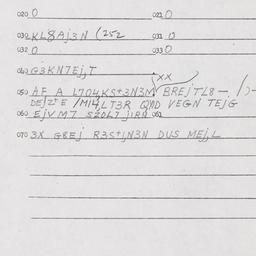 020 O 021 O
030 KL8Aj3N (252 031 O
032 O 033 O
040 G3KN7Ej,T
xx
050 AF A L704KS+3N3M BREjTL8 -
DEjZ'E /MI4LT3R QND VEGN TEjG
060 EjVM7 S20L7 061
070 3X G8Ej R3S+jN3N DUS MEj,L